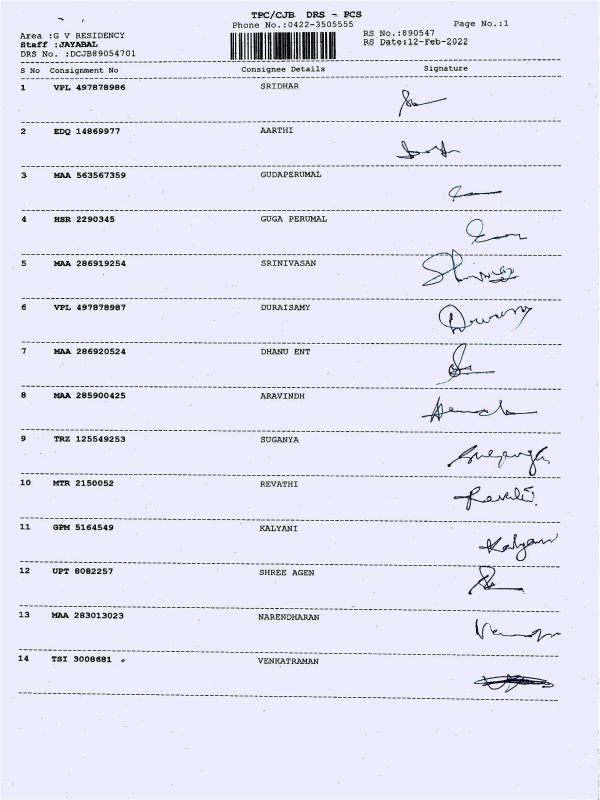 TPC/CJB DRS - PCS
Phone No.:0422-3505555 Page No.:1
Area :G V RESIDENCY RS No.:890547
Staff :JAYABAL RS Date:12-Feb-2022
DRS No. :DCJB89054701
S No Consignment No Consignee Details Signature
1 VPL 497878986 SRIDHAR
2 EDQ 14869977 AARTHI
3 MAA 563567359 GUDAPERUMAL
4 HSR 2290345 GUGA PERUMAL
5 MAA 286919254 SRINIVASAN
6 VPL 497878987 DURAISAMY
7 MAA 286920524 DHANU ENT
8 MAA 285900425 ARAVINDH
9 TRZ 125549253 SUGANYA
10 MTR 2150052 REVATHI
11 GPM 5164549 KALYANI
12 UPT 8082257 SHREE AGEN
13 MAA 283013023 NARENDHARAN
14 TSI 3008681 VENKATRAMAN